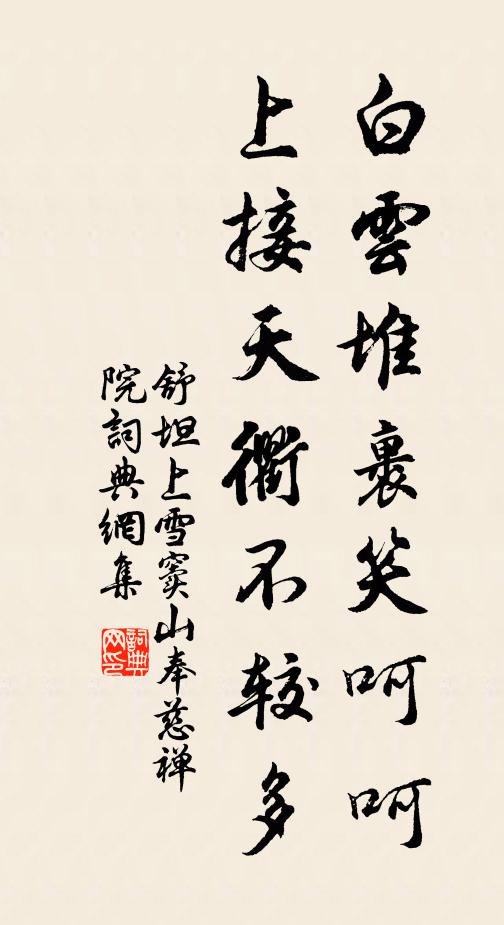 白雲堆裹笑呵呵
上接天衢不较多
舒坦上雪窦山奉慈禅
院詞典網集
詞典网印